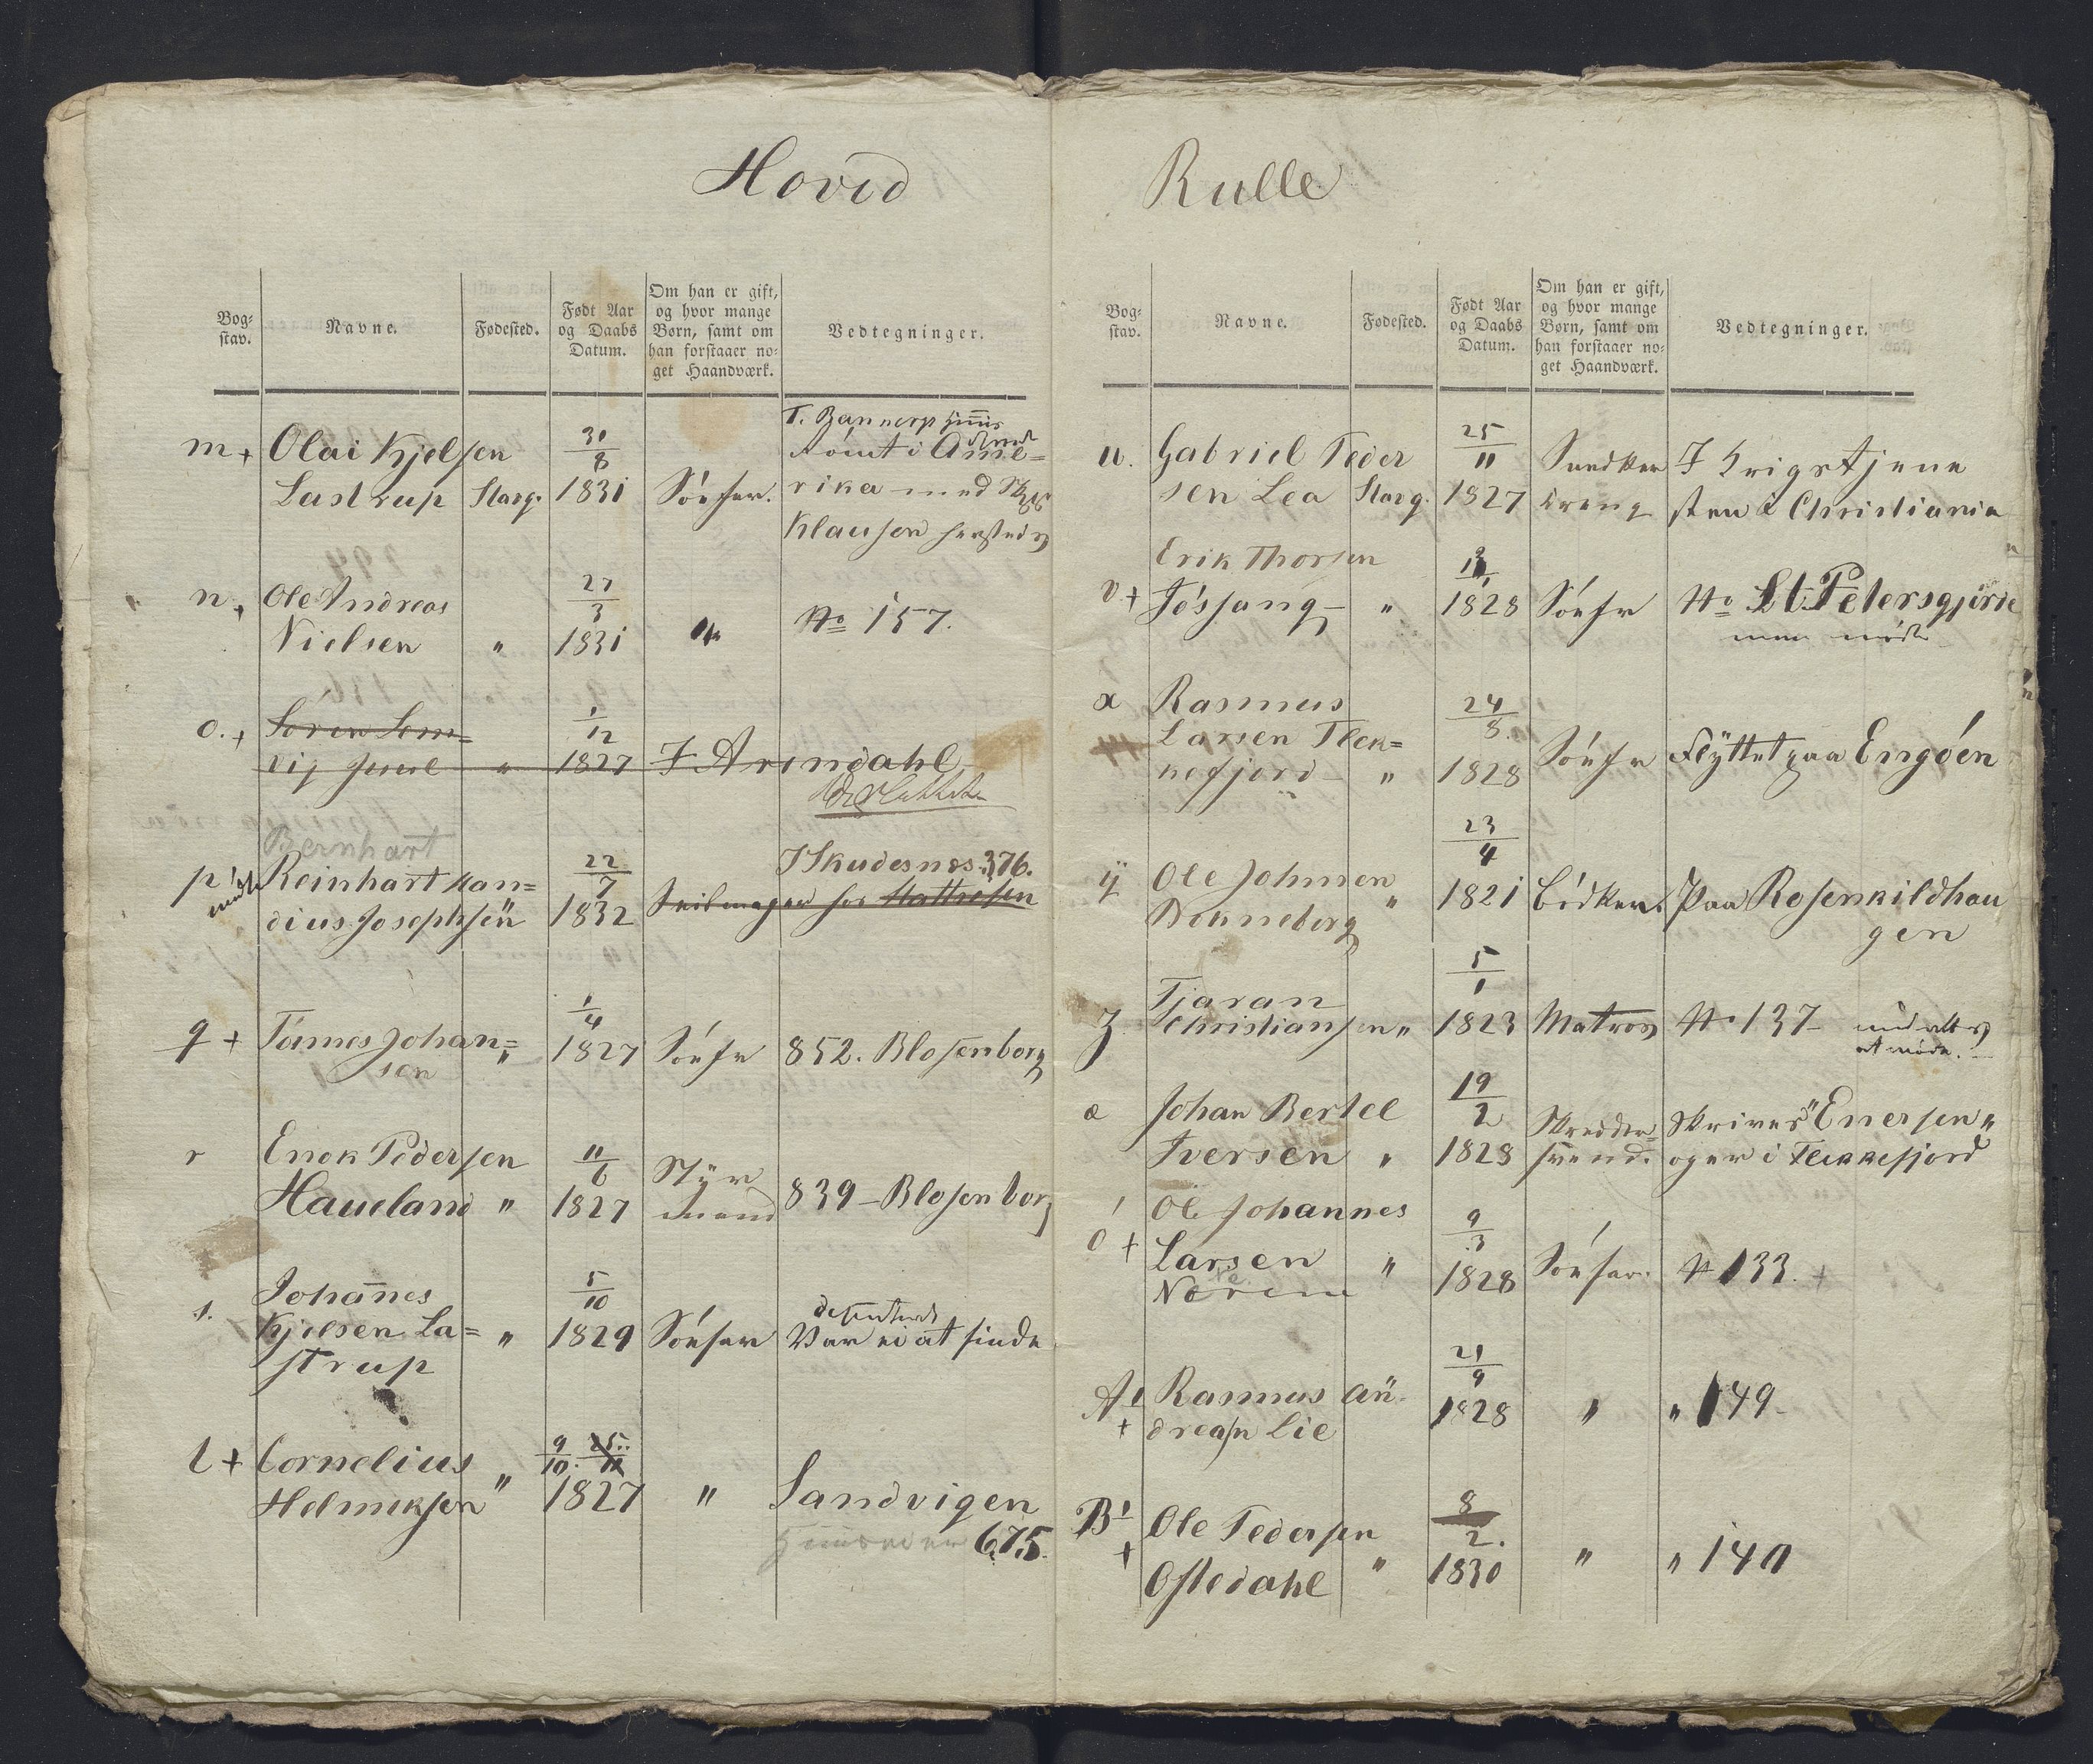 Hovid
Bog-
stav.
Navne.
Fødested.
Født Aar
og Daabs
Datum.
Om han er gift,
og hvor mange
Børn, samt om
han forstaaer no-
get Haandværk.
Vedtegninger.
m +
Olai Kjelsen
Lastrup
Stavg.
30/8
1831
Søefar.
Rømt i Ame=
rika med
Klausen
n +
Ole Andreas
Nielsen
"
27/3
1831
"
No 157.
o. +
Søren Som=
vig Juul
"
1/12
1827
I Arendahl
p
Bernhart
Reinhart Han=
dius Josephsen
22/7
1832
Seilmager
I Skudesnes. 376.
q +
Tønnes Johan=
sen
"
1/4
1827
Søefr
852. Blosenborg
r
Enok Pedersen
Haueland
"
11/6
1827
Styr
mand
839 – Blosenborg
s.
Johanes
Kjelsen La=
strup
"
5/10
1829
Søefar
Var ei at finde
t +
Cornelius
Helmiksen
"
9/10. 25/11
1827
"
Sandvigen
675.
Rulle
Bog-
stav.
Navne.
Fødested.
Født Aar
og Daabs
Datum.
Om han er gift,
og hvor mange
Børn, samt om
han forstaaer no-
get Haandværk.
Vedtegninger.
u.
Gabriel Peder
sen Lea
Stavg.
25/11
1827
Snedker
dreng
I Krigstjene
sten i Christiania
v +
Erik Thorsen
Jøssang –
"
1828
Søefr
No St. Petersgjerde
x
Rasmus
Larsen Flek=
kefjord –
"
24/8.
1828
Søefr
Flyttet paa Engøen
ÿ
Ole Johnsen
Bonneborg
"
23/4
1821
Bødker.
Paa Rosenkildhau
gen
z
Tjaran
Christiansen
"
5/1
1823
Matros
No 137 –
at møde.
æ
Johan Bertel
Iversen
"
19/2
1828
Skredder=
svend.
Skrives "Enersen"
og er i Flekkefjord
ø +
Ole Johannes
Larsen
Nærem
"
9/3
1828
Søefar.
No 133. +
A1 +
Rasmus An-
dreasn Lie
21/9
1828
"
" 149 –
B1 +
Ole Pedersen
Ostedahl
"
8/2.
1830
"
" 140